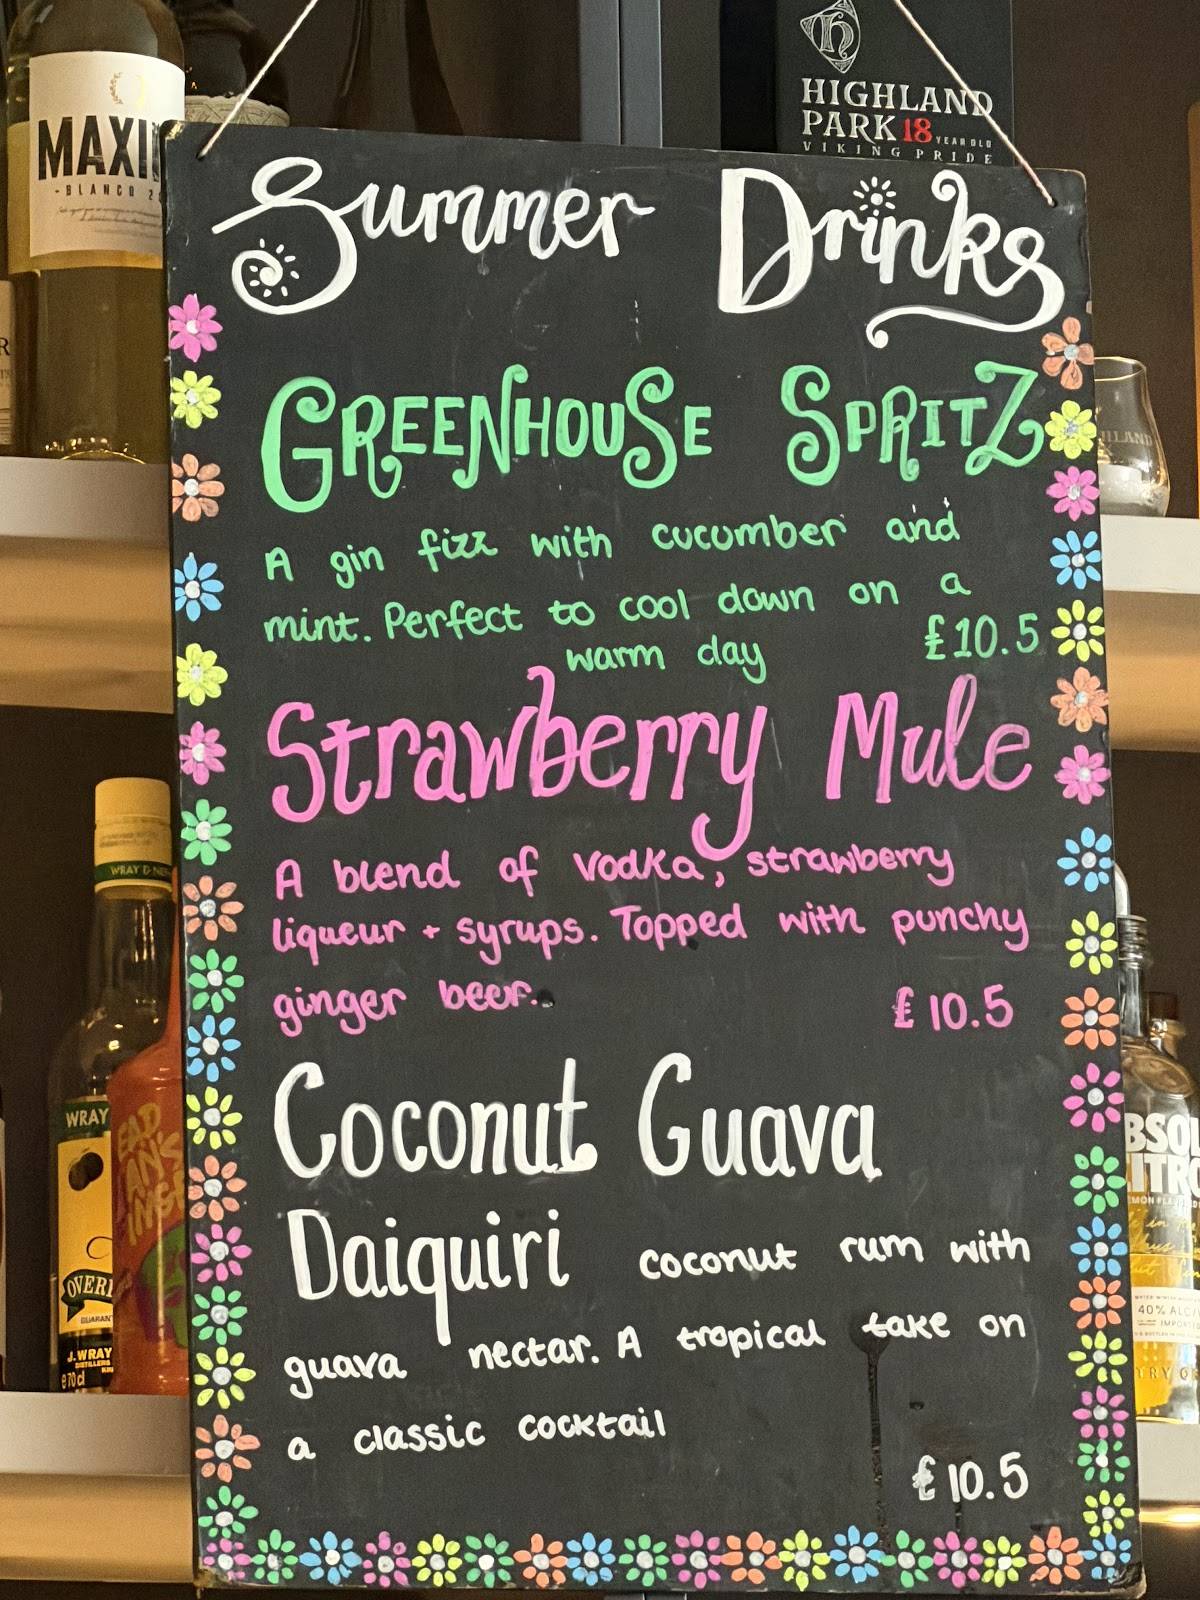 MAXI
-BLANCO 2
HIGHLAND
PARK 18 YEAR OLD
VIKING PRIDE
Summer Drinks
GREENHOUSE SPRITZ
A gin fizz with cucumber and
mint. Perfect to cool down on a
warm day £10.5
Strawberry Mule
A blend of vodka, strawberry
liqueur + syrups. Topped with punchy
ginger beer. £10.5
Coconut Guava
Daiquiri coconut rum with
guava nectar. A tropical take on
a classic cocktail
£10.5
WRAY & NE
WRAY
OVER
GUARAN
J.WRAY
DISTILLERS
e70cl
EAD
AN'S
INGE
BSOL
ITRO
40% ALC
IMPORTED